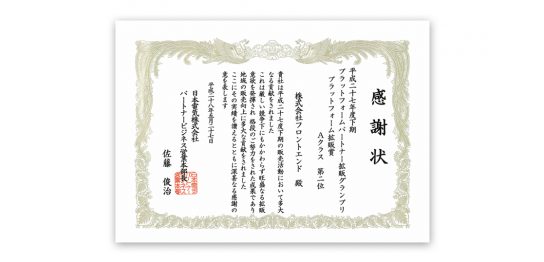 感謝状
平成二十七年度下期
プラットフォームパートナー拡販グランプリ
プラットフォーム拡販賞
Aクラス 第二位
株式会社フロントエンド 殿
貴社は平成二十七年度下期の販売活動において多大
なる貢献をされました
これは厳しい競争下にもかかわらず旺盛なる拡販
意欲を発揮され 格段のご努力をされた成果であり
地域の販売向上に多大な貢献をされました
ここにその実績を讃えるとともに深甚なる感謝の
意を表します
平成二十八年五月二十七日
日本電気株式会社
パートナービジネス営業本部長
佐藤 俊治